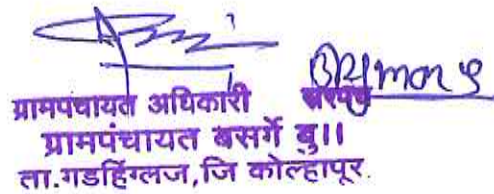 ग्रामपंचायत अधिकारी सरपंच
ग्रामपंचायत बसर्गे बु॥
ता.गडहिंग्लज,जि कोल्हापूर.